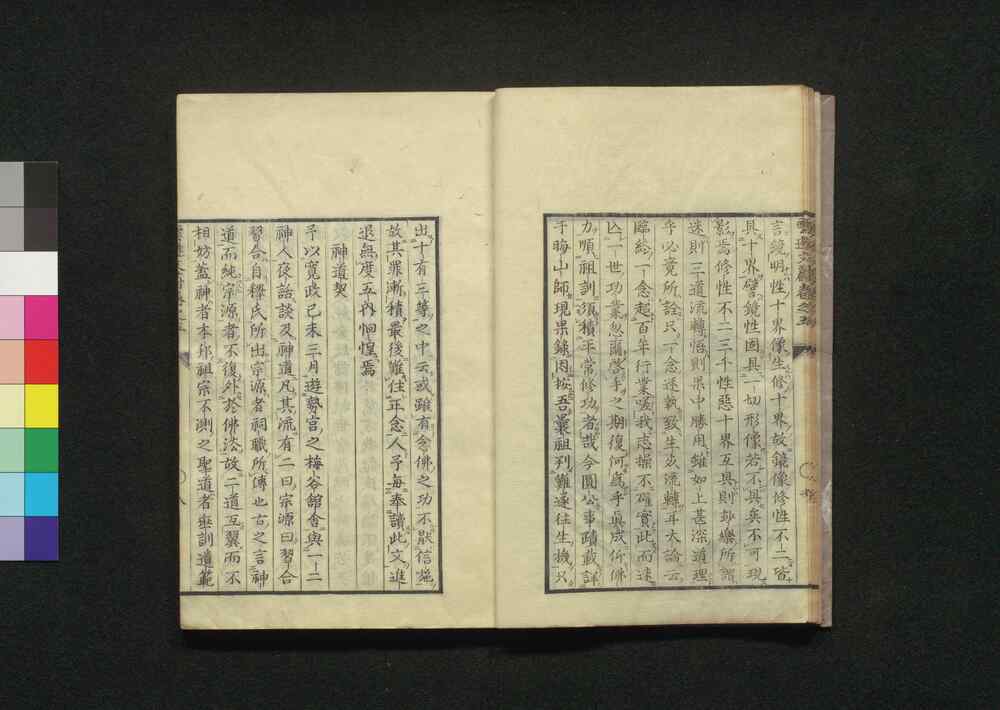 言鏡明性十界像生修十界故鏡像修性不二皆
具十界譬鏡性固具一切形像若不具矣不可現
影焉修性不二三千性惡十界互具則妙樂所謂
迷則三道流轉悟則果中勝用雖如上甚深道理
乎必竟所詮只一念迷執致生玄流轉耳大論云
臨終一念起百年行業嗟我志操不確實此而速
亾一世功業忽爾啓手之期復何爲乎眞成仰佛
力順祖訓須積平常修功者哉今圓公事蹟載詳
于晦山師現果錄因按吾曩祖列難遂往生機只
出十有三等之中云或雖有念佛之功不厭信施
故其罪漸積最後難住正念人予每奉讀此文進
退無度五内恛惶焉
神道契
予以寬政己未三月遊勢宮之梅谷舘舎與一二
神人夜話談及神道凡其流有二曰宗源曰習合
習合自釋氏所出宗源者祠職所傳也古之言神
道而純宗源者不復外於佛法故二道互翼而不
相妨蓋神者本邦祖宗不測之聖道者垂訓遺範